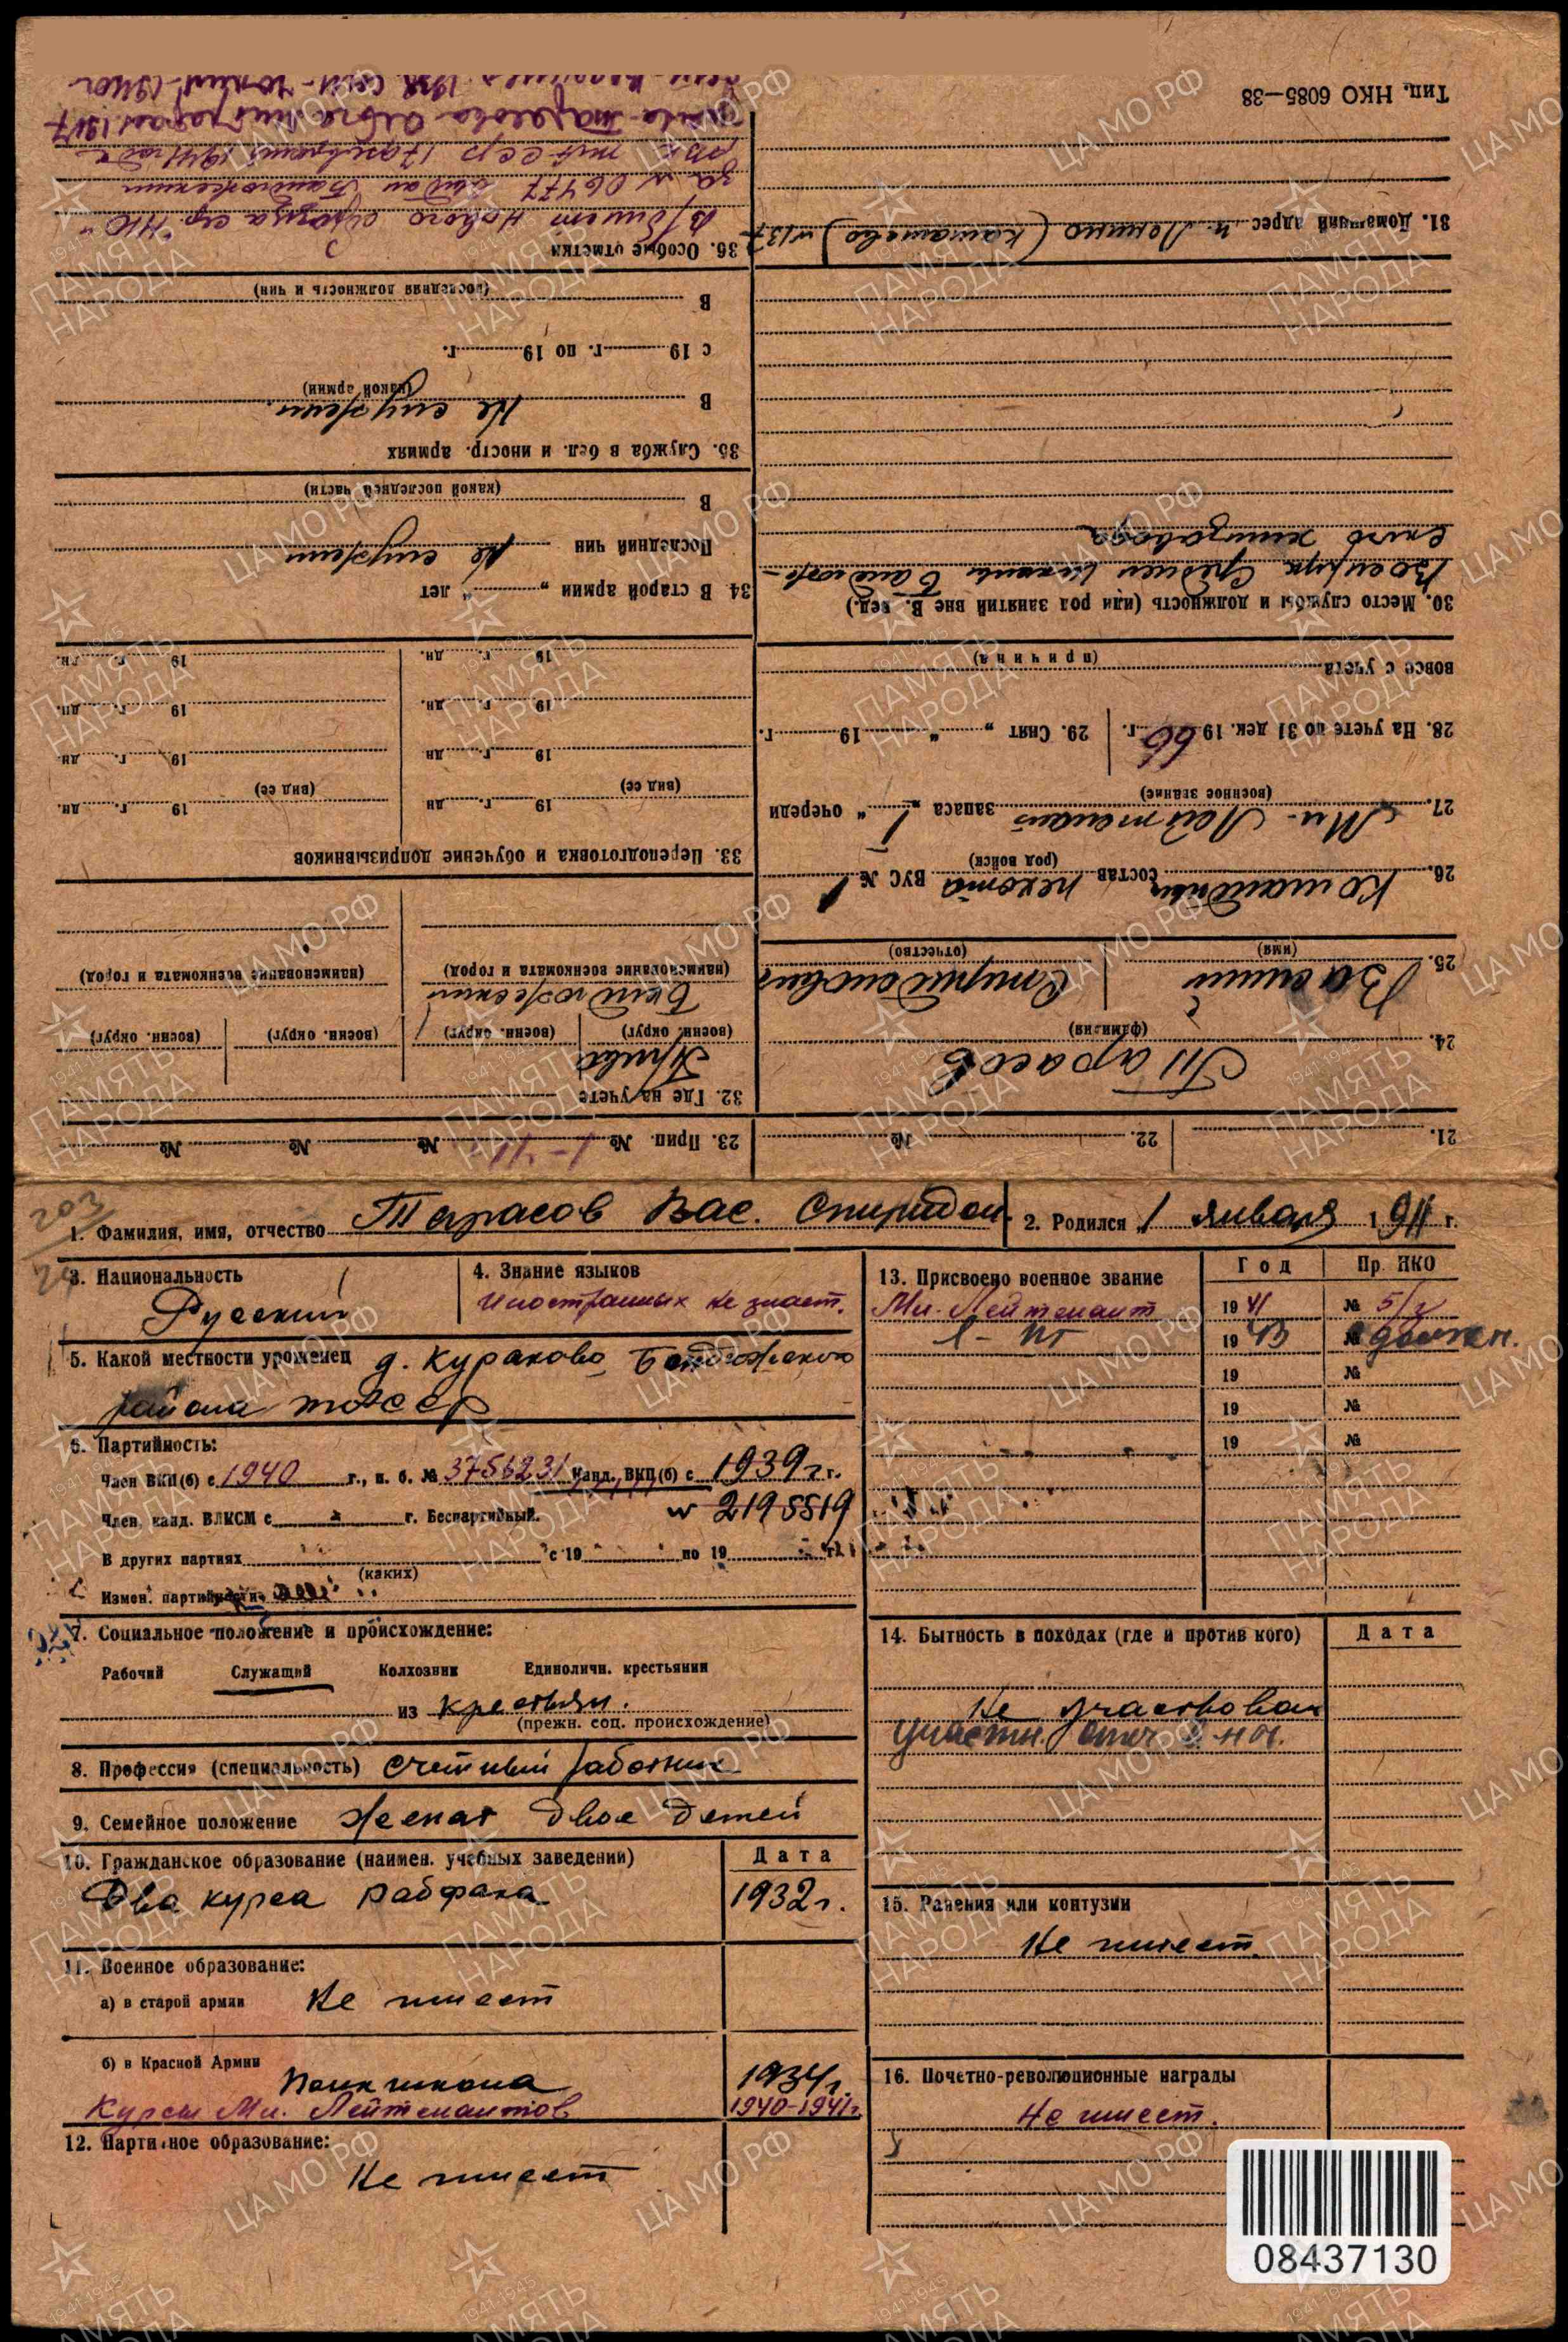 1. Фамилия, имя, отчество Тарасов Вас. Спиридон.
2. Родился 1 января 1911 г.
3. Национальность
Русский
4. Знание языков
Иностранных не знает.
5. Какой местности уроженец д. Кураково Бондюжского
района ТАССР
6. Партийность:
Член ВКП(б) с 1940 г., п. б. № 3756231 Канд. ВКП(б) с 1939 г.
№ 2195519
Член, канд. ВЛКСМ с г. Беспартийный.
В других партиях с 19 по 19 г.
(каких)
Измен. партийности
7. Социальное положение и происхождение:
Рабочий Служащий Колхозник Единоличн. крестьянин
из крестьян.
(прежн. соц. происхождение)
8. Профессия (специальность) счетный работник
9. Семейное положение Женат двое детей
10. Гражданское образование (наимен. учебных заведений) Дата
Два курса рабфака 1932 г.
11. Военное образование:
а) в старой армии Не имеет
б) в Красной Армии
Полк школа 1934 г.
Курсы Мл. Лейтенантов 1940-1941 г.
12. Партийное образование:
Не имеет
13. Присвоено военное звание Год Пр. НКО
Мл. Лейтенант 1941 № 5/г
Л-нт 1943 №
19 №
19 №
19 №
14. Бытность в походах (где и против кого) Дата
Не участвовал
Участн. Отеч. в-ны.
15. Ранения или контузии
Не имеет
16. Почетно-революционные награды
Не имеет.
08437130
21.
22. №
23. Прип. № 1-41 № № №
24. Тарасов
(фамилия)
25. Василий Спиридонович
(имя) (отчество)
26. Командный состав пехота ВУС № 1
(род войск)
27. Мл. Лейтенант запаса „I“ очереди
(военное звание)
28. На учете по 31 дек. 1966 г. 29. Снят „ “ 19 г.
вовсе с учета
(причина)
30. Место службы и должность (или род занятий вне В. вед.)
Военрук средней школы Бондюж-
ского химзавода
31. Домашний адрес п. Ленино (Камашево) №137
Тип. НКО 6085—38
32. Где на учете
Прив
(воен. округ) (военн. округ) (военн. округ) (военн. округ)
Бондюжский
(наименование военкомата и город) (наименование военкомата и город)
33. Переподготовка и обучение допризывников
19 г. дн 19 г. дн.
(вид ее) (вид ее)
19 г. дн 19 г. дн.
19 г. дн. 19 г. дн.
19 г. дн. 19 г. дн.
34. В старой армии „ “ лет
Последний чин Не служил
В
(какой последней части)
35. Служба в бел. и иностр. армиях
В Не служил.
(какой армии)
с 19 г. по 19 г.
В
(последняя должность и чин)
36. Особые отметки
В/билет нового образца сер. "НЮ"
за № 06477 выдан Бондюжским
РВК ТАССР 17 1941 года
Жена Тарасова Ольга 1917
1940г
ЦА МО РФ
ПАМЯТЬ
НАРОДА
1941-1945